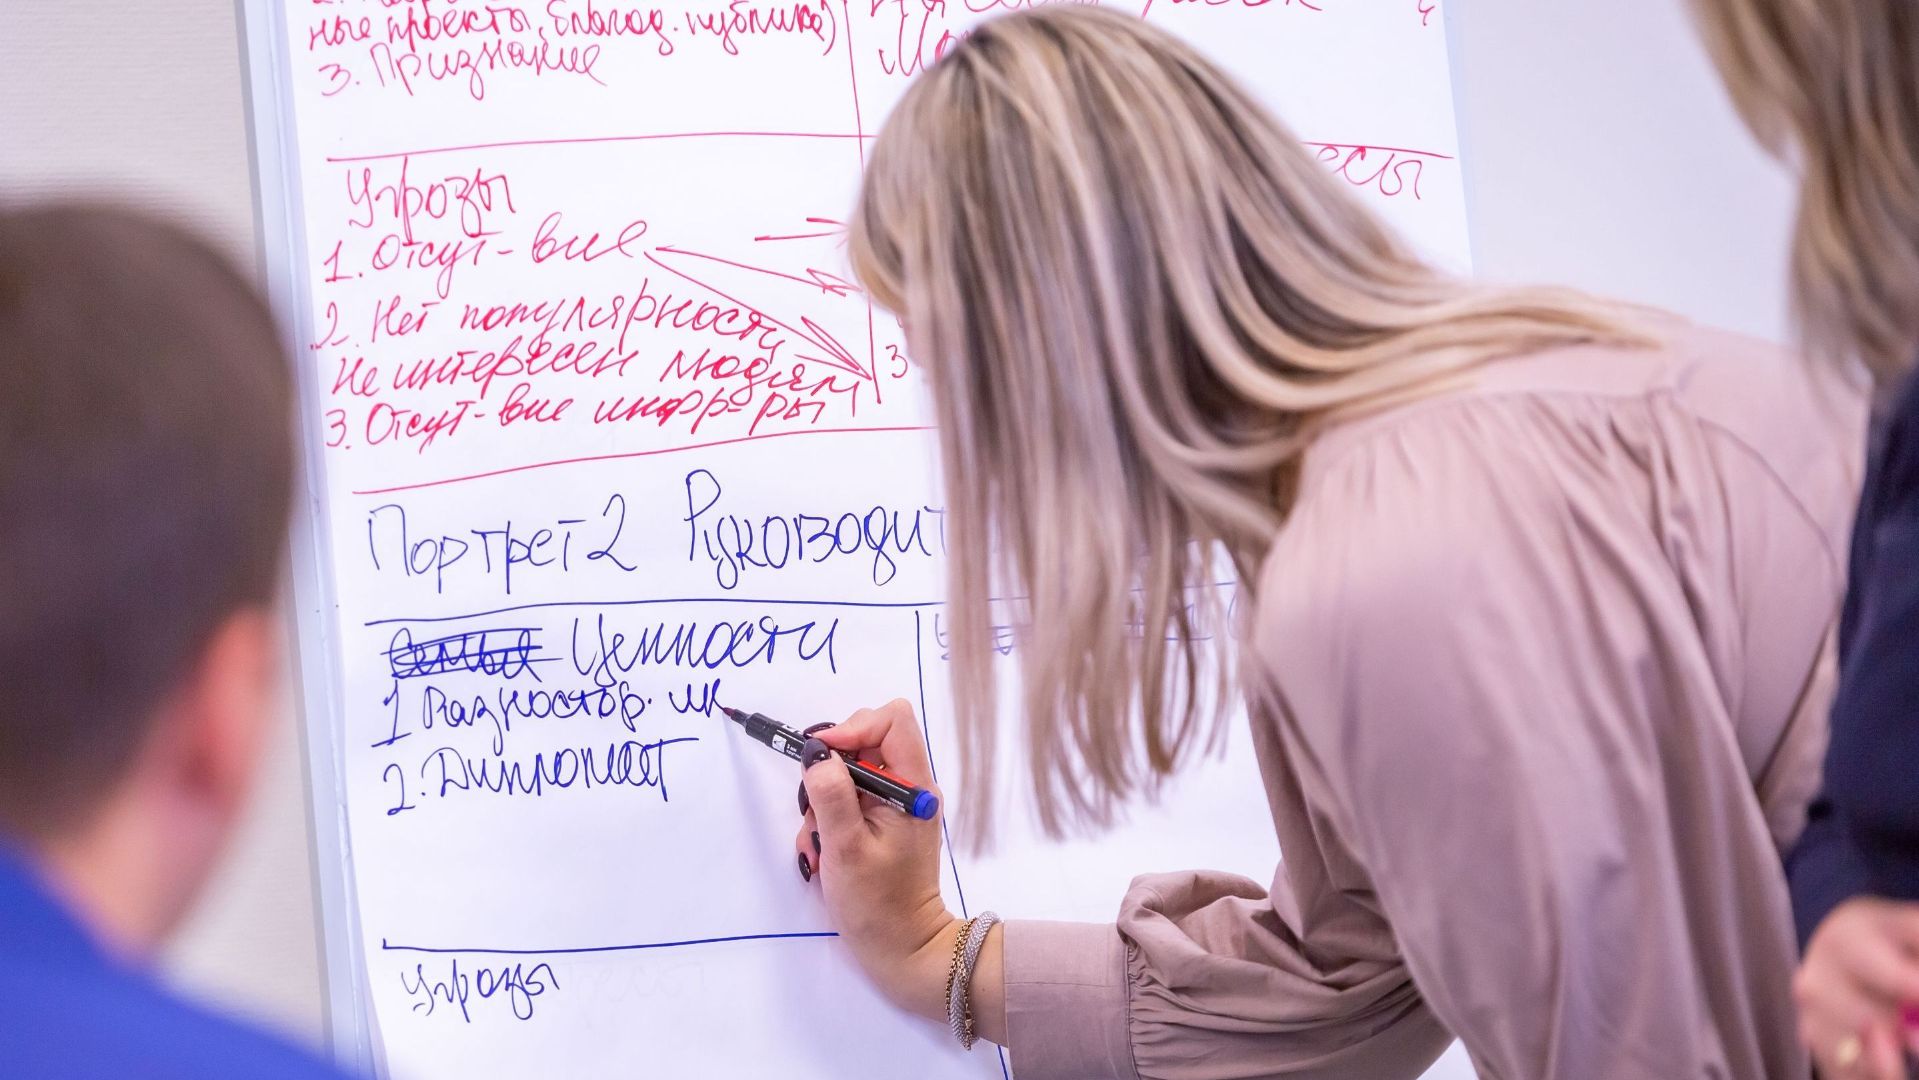 ные проекты, благод. публика)
3. Признание
Угрозы
есы
1. Отсут-вие
2. Нет популярности
Не интересен людям
3
3. Отсут-вие инфр-ры
Портрет 2 Руководит
Ценности
1 Разностор.
2. Дипломат
Угрозы